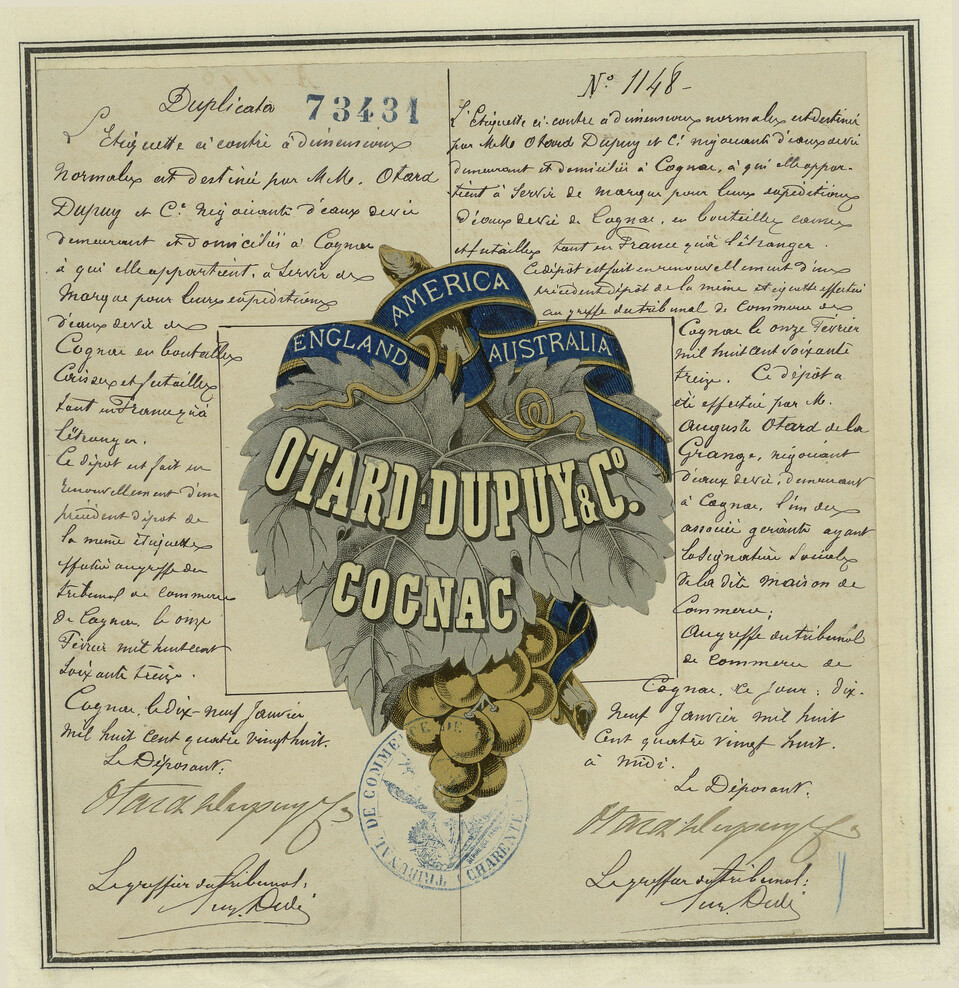 Duplicata 73431
L'Etiquette ci contre a dimensions
normales est destinée par M.M. Otard
Dupuy et Cie négociants d'eaux de vie
demeurant et domiciliés à Cognac
à qui elle appartient, à servir de
Marque pour leurs expéditions
d'eaux de vie de
Cognac en bouteilles
Caisses et futailles
tant en France qu'à
l'étranger.
Ce dépôt est fait en
renouvellement d'un
précédent dépôt de
la même étiquette
effectué au greffe du
tribunal de commerce
de Cognac, le onze
Février mil huit cent
soixante treize.
Cognac, le dix-neuf Janvier
Mil huit Cent quatre vingt huit.
Le Déposant:
Otard Dupuy & Co
Le greffier du tribunal:
No 1148-
L'Etiquette ci-contre a dimensions normales est destinée
par M.M. Otard Dupuy et Cie négociants d'eaux de vie
demeurant et domiciliés à Cognac, à qui elle appar-
tient à servir de marque pour leurs expéditions
d'eaux de vie de Cognac, en bouteilles caisses
et futailles tant en France qu'à l'étranger.
Ce dépôt est fait en renouvellement d'un
précédent dépôt de la même étiquette effectué
au greffe du tribunal de Commerce de
Cognac le onze Février
mil huit cent soixante
treize. Ce dépôt a
été effectué par M.
Auguste Otard de la
Grange, négociant
d'eaux de vie, demeurant
à Cognac, l'un des
associés gérants ayant
la signature sociale
de la dite maison de
Commerce;
Au greffe du tribunal
de commerce de
Cognac, ce jour: dix-
neuf Janvier mil huit
Cent quatre vingt huit.
à midi.
Le Déposant:
Otard Dupuy & Co
Le greffier du tribunal:
ENGLAND AMERICA AUSTRALIA
OTARD-DUPUY & Co.
COGNAC
TRIBUNAL DE COMMERCE DE
CHARENTE